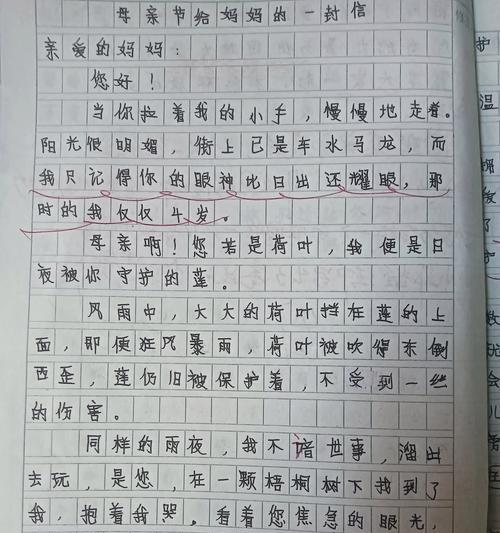 母亲节给妈妈的一封信
亲爱的妈妈：
您好！
当你拉着我的小手，慢慢地走着。
阳光很明媚，街上已是车水马龙，而
我只记得你的眼神比日出还耀眼，那
时的我仅仅4岁。
母亲啊！您若是荷叶，我便是日
夜被你守护的莲。
风雨中，大大的荷叶挡在莲的上
面，即便狂风暴雨，荷叶被吹得东倒
西歪，莲仍旧被保护着，不受到一丝
的伤害。
同样的雨夜，我不谙世事，溜出
去玩，是您，在一颗梧桐树下找到了
我，抱着我哭。看着您焦急的眼光，
护
温
了
数
会
儿